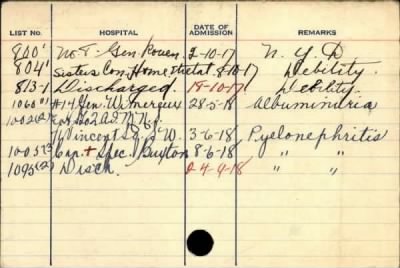 LIST NO. HOSPITAL DATE OF ADMISSION REMARKS
800' No 7 Gen Rouen 2-10-17 N.Y.D
804' Sisters Con. Home 8-10-17 Debility.
813-1 Discharged. 18-10-17 Debility.
#14 Gen. Wimereux 28-5-18 Albuminuria
Vincent Sq. S.W. 3-6-18 Pyelonephritis
1005(3) Can + Spec. Buxton 8-6-18 " "
1095(2) Disch. -18 " "